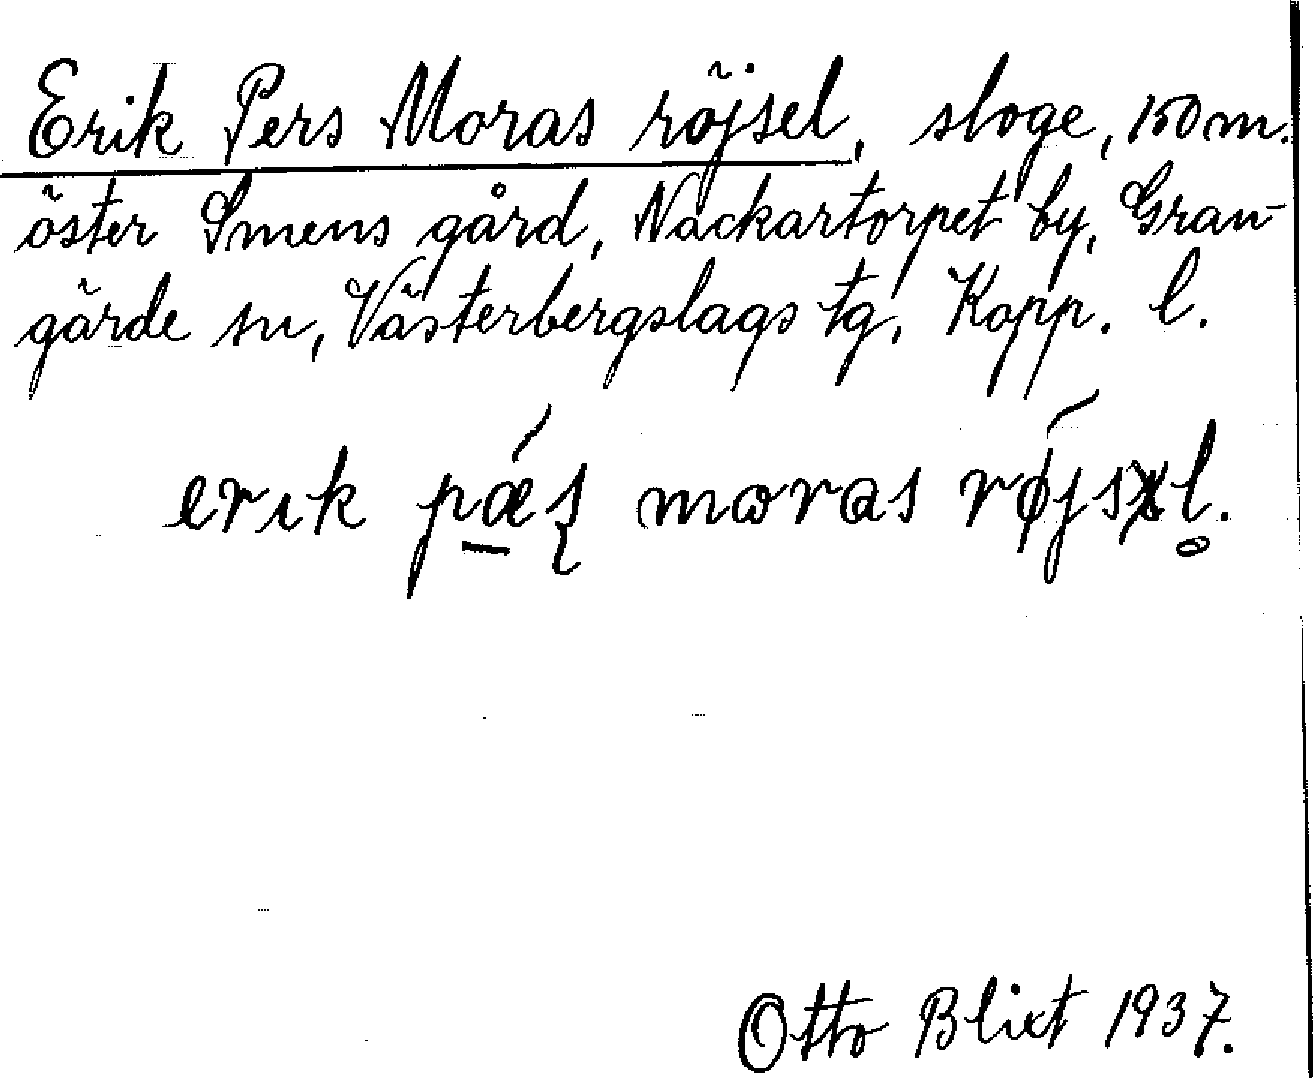 Erik Pers Moras röjsel, sloge, 150 m.
öster Smens gård, Nackartorpet by, Gran-
gärde sn, Västerbergslags tg, Kopp. l.
erik pǽʂ moras rǿjsl̥.
Otto Blixt 1937.